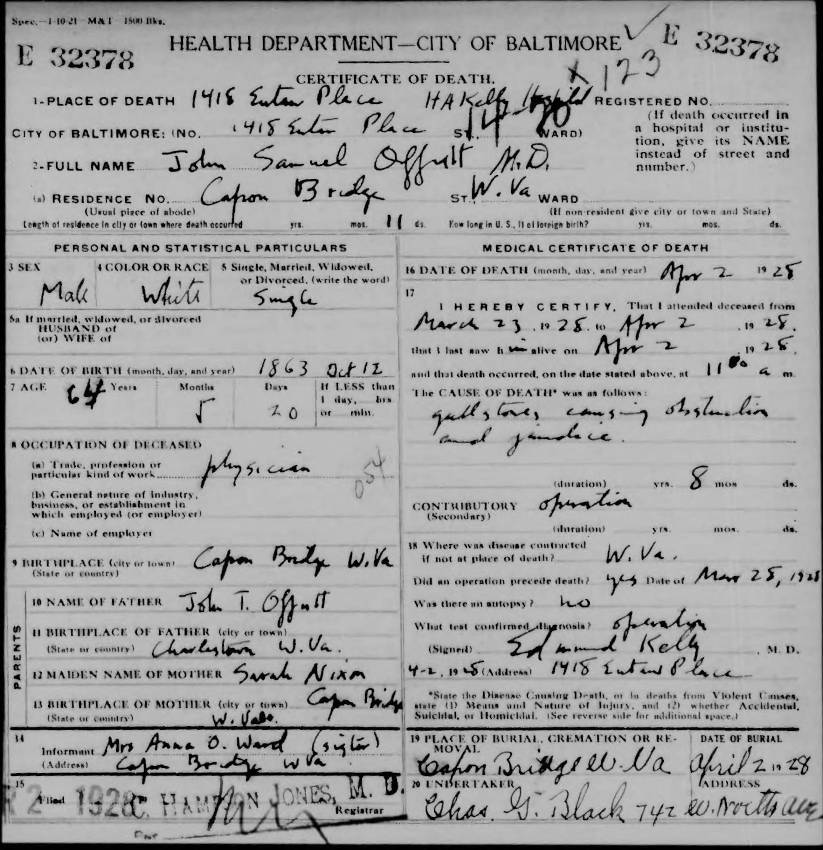 Spec.—1-10-21—M&T—1500 Bks.
E 32378
HEALTH DEPARTMENT—CITY OF BALTIMORE
E 32378
CERTIFICATE OF DEATH.
123
1-PLACE OF DEATH 1418 Eutaw Place HAKelly Hospital REGISTERED NO.
CITY OF BALTIMORE: (NO. 1418 Eutaw Place ST. 14 WARD)
(If death occurred in a hospital or institution, give its NAME instead of street and number.)
2-FULL NAME John Samuel Offutt M.D.
(a) RESIDENCE NO. Capon Bridge ST. W. Va WARD
(Usual place of abode) (If non-resident give city or town and State)
Length of residence in city or town where death occurred yrs. mos. 11 ds. How long in U. S., if of foreign birth? yrs. mos. ds.
PERSONAL AND STATISTICAL PARTICULARS
3 SEX Male
4 COLOR OR RACE White
5 Single, Married, Widowed, or Divorced, (write the word) Single
5a If married, widowed, or divorced
HUSBAND of
(or) WIFE of
6 DATE OF BIRTH (month, day, and year) 1863 Oct 12
7 AGE 64 Years 5 Months 20 Days If LESS than 1 day, hrs or min.
8 OCCUPATION OF DECEASED
(a) Trade, profession or particular kind of work physician
054
(b) General nature of industry, business, or establishment in which employed (or employer)
(c) Name of employer
9 BIRTHPLACE (city or town) Capon Bridge W. Va
(State or country)
PARENTS
10 NAME OF FATHER John T. Offutt
11 BIRTHPLACE OF FATHER (city or town)
(State or country) Charlestown W. Va.
12 MAIDEN NAME OF MOTHER Sarah Nixon
13 BIRTHPLACE OF MOTHER (city or town) Capon Bridge
(State or country) W. Va.
14 Informant Mrs Anna O. Ward (sister)
(Address) Capon Bridge W Va
15 Filed 2 1928 C. HAMPSON JONES, M. D.
Registrar
MEDICAL CERTIFICATE OF DEATH
16 DATE OF DEATH (month, day, and year) Apr 2 1928
17
I HEREBY CERTIFY, That I attended deceased from
March 23, 1928, to Apr 2, 1928,
that I last saw him alive on Apr 2, 1928,
and that death occurred, on the date stated above, at 11 00 a m.
The CAUSE OF DEATH* was as follows:
gallstones causing obstruction
and jaundice.
(duration) yrs. 8 mos ds.
CONTRIBUTORY operation
(Secondary)
(duration) yrs. mos. ds.
18 Where was disease contracted
if not at place of death? W. Va.
Did an operation precede death? yes Date of Mar 28, 1928
Was there an autopsy? no
What test confirmed diagnosis? operation
(Signed) Edmund Kelly, M. D.
4-2, 1928 (Address) 1418 Eutaw Place
*State the Disease Causing Death, or in deaths from Violent Causes,
state (1) Means and Nature of Injury, and (2) whether Accidental,
Suicidal, or Homicidal. (See reverse side for additional space.)
19 PLACE OF BURIAL, CREMATION OR REMOVAL
Capon Bridge W Va
DATE OF BURIAL
April 2 1928
20 UNDERTAKER
Chas. G. Black
ADDRESS
742 W. North ave